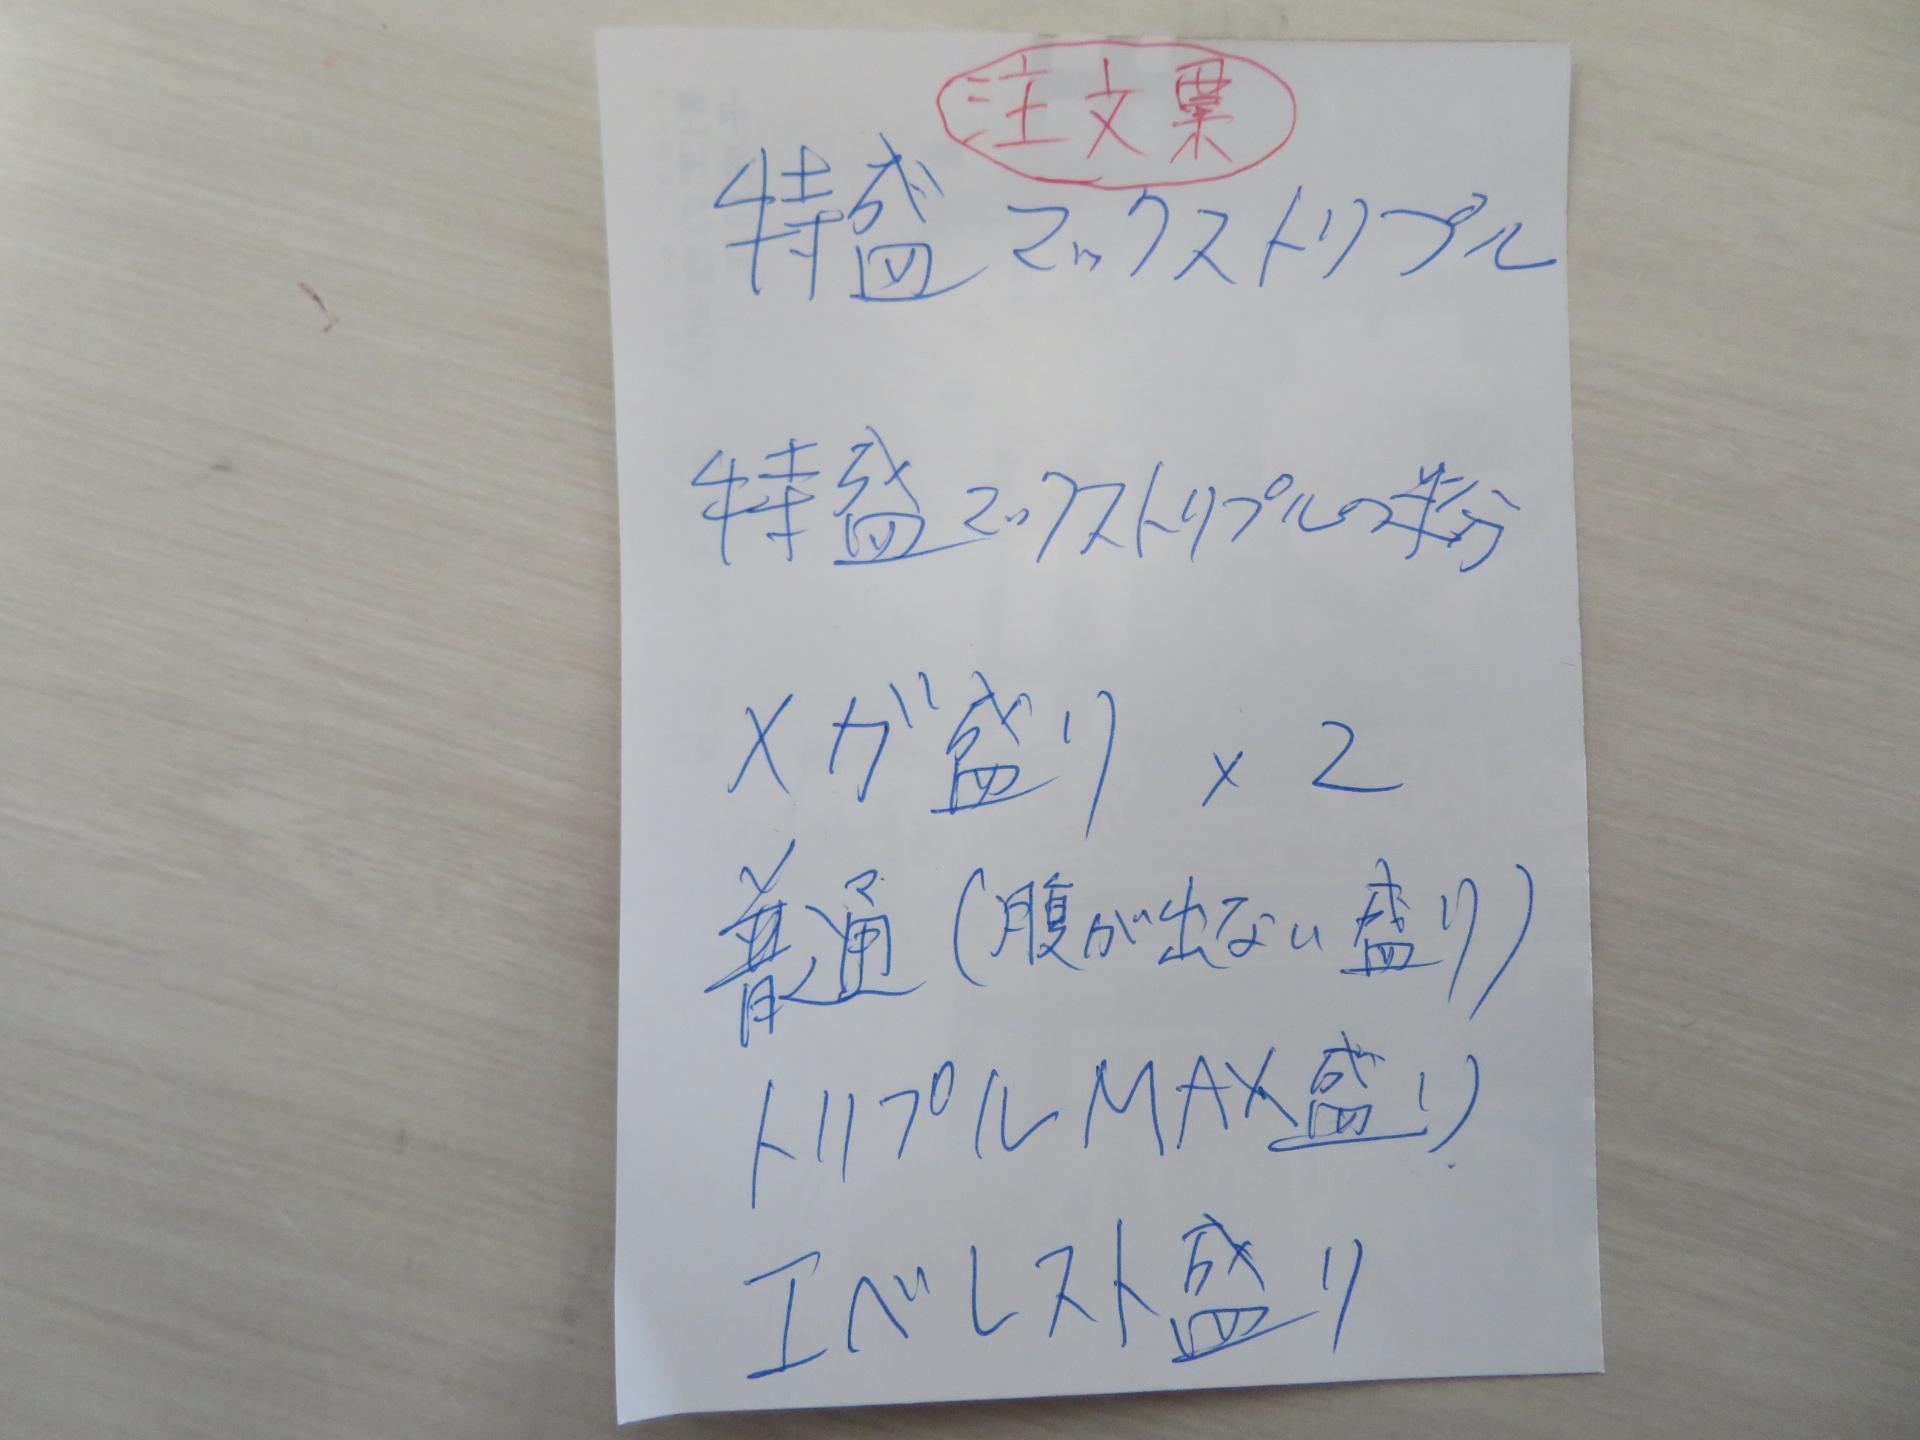 注文票
特盛マックストリプル
特盛マックストリプルの半分
メガ盛り × 2
普通(腹が出ない盛り)
トリプルMAX盛り
エベレスト盛り